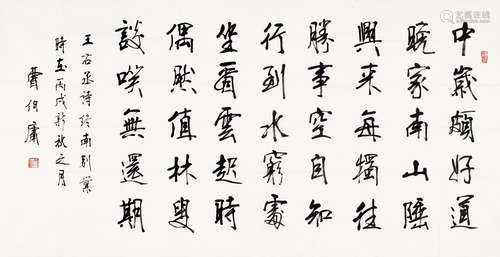 中歲頗好道
晚家南山陲
興來每獨往
勝事空自知
行到水窮處
坐看雲起時
偶然值林叟
談咲無還期
王右丞詩終南别業
時在丙戌新秋之月
費伯庸